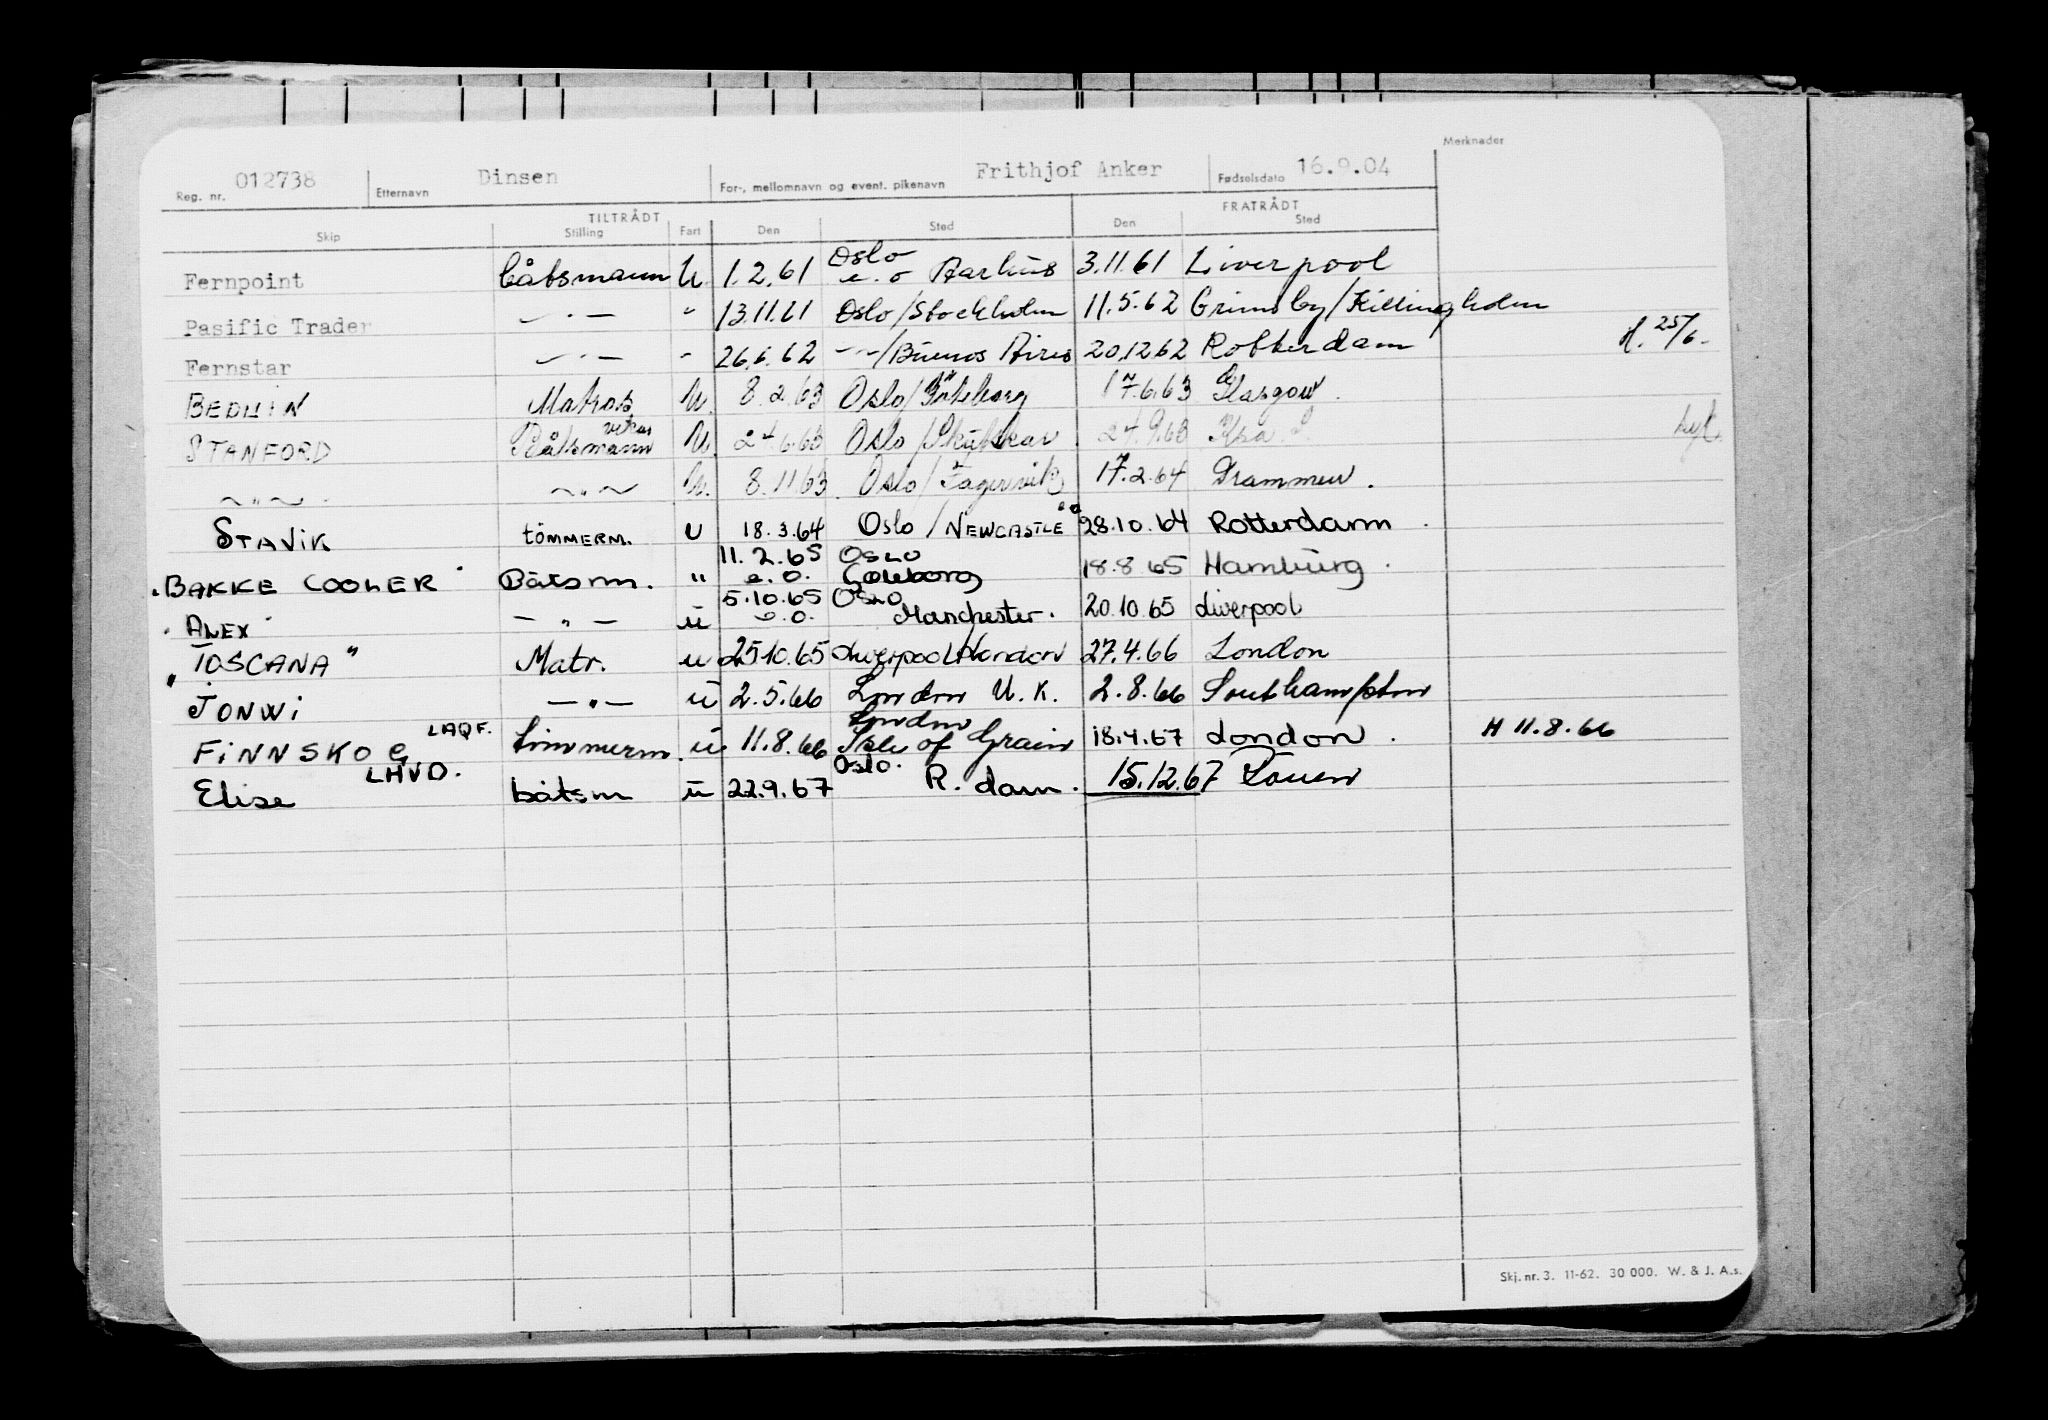 Merknader
Reg. nr. 012738 Etternavn Dinsen For-, mellomnavn og event. pikenavn Frithjof Anker Fødselsdato 16.9.04
TILTRÅDT FRATRÅDT
Skip Stilling Fart Den Sted Den Sted
Fernpoint båtsmann U. 1.2.61 Oslo e.o Aarhus 3.11.61 Liverpool
Pasific Trader — " — " 13.11.61 Oslo/Stockholm 11.5.62 Grimsby/Killingholm
Fernstar — " — " 26.6.62 —"—/Buenos Aires 20.12.62 Rotterdam H. 25/6.
BEDUIN Matros U. 8.2.63 Oslo/Göteborg 17.6.63 Glasgow.
STANFORD Båtsmann U. 24.6.63 Oslo/Skutskär 24.9.63
~ " ~ . ~ " ~ U. 8.11 63. Oslo/Fagervik 17.2.64 Drammen.
STAVIK tömmerm. U 18.3.64 Oslo/NEWCASTLE 28.10.64 Rotterdam.
"BAKKE COOLER" Båtsm. " 11.2.65 e.o. OSLO Göteborg 18.8 65 Hamburg.
"ALEX" — " — ü 5.10.65 e.o. OSLO Manchester. 20.10.65 Liverpool
"TOSCANA" Matr. ü 25.10.65 Liverpool/London 27.4.66 London
JONWI — " — ü 2.5.66 London U.K. 2.8.66 Southampton
FINNSKOG LAQF. tömmerm. ü 11.8.66 London Isle of Grain 18.4.67 London. H 11.8.66
Elise LHVD. båtsm ü 22.9.67 Oslo. R.dam. 15.12.67
Skj. nr. 3. 11-62. 30 000. W. & J. A.s.